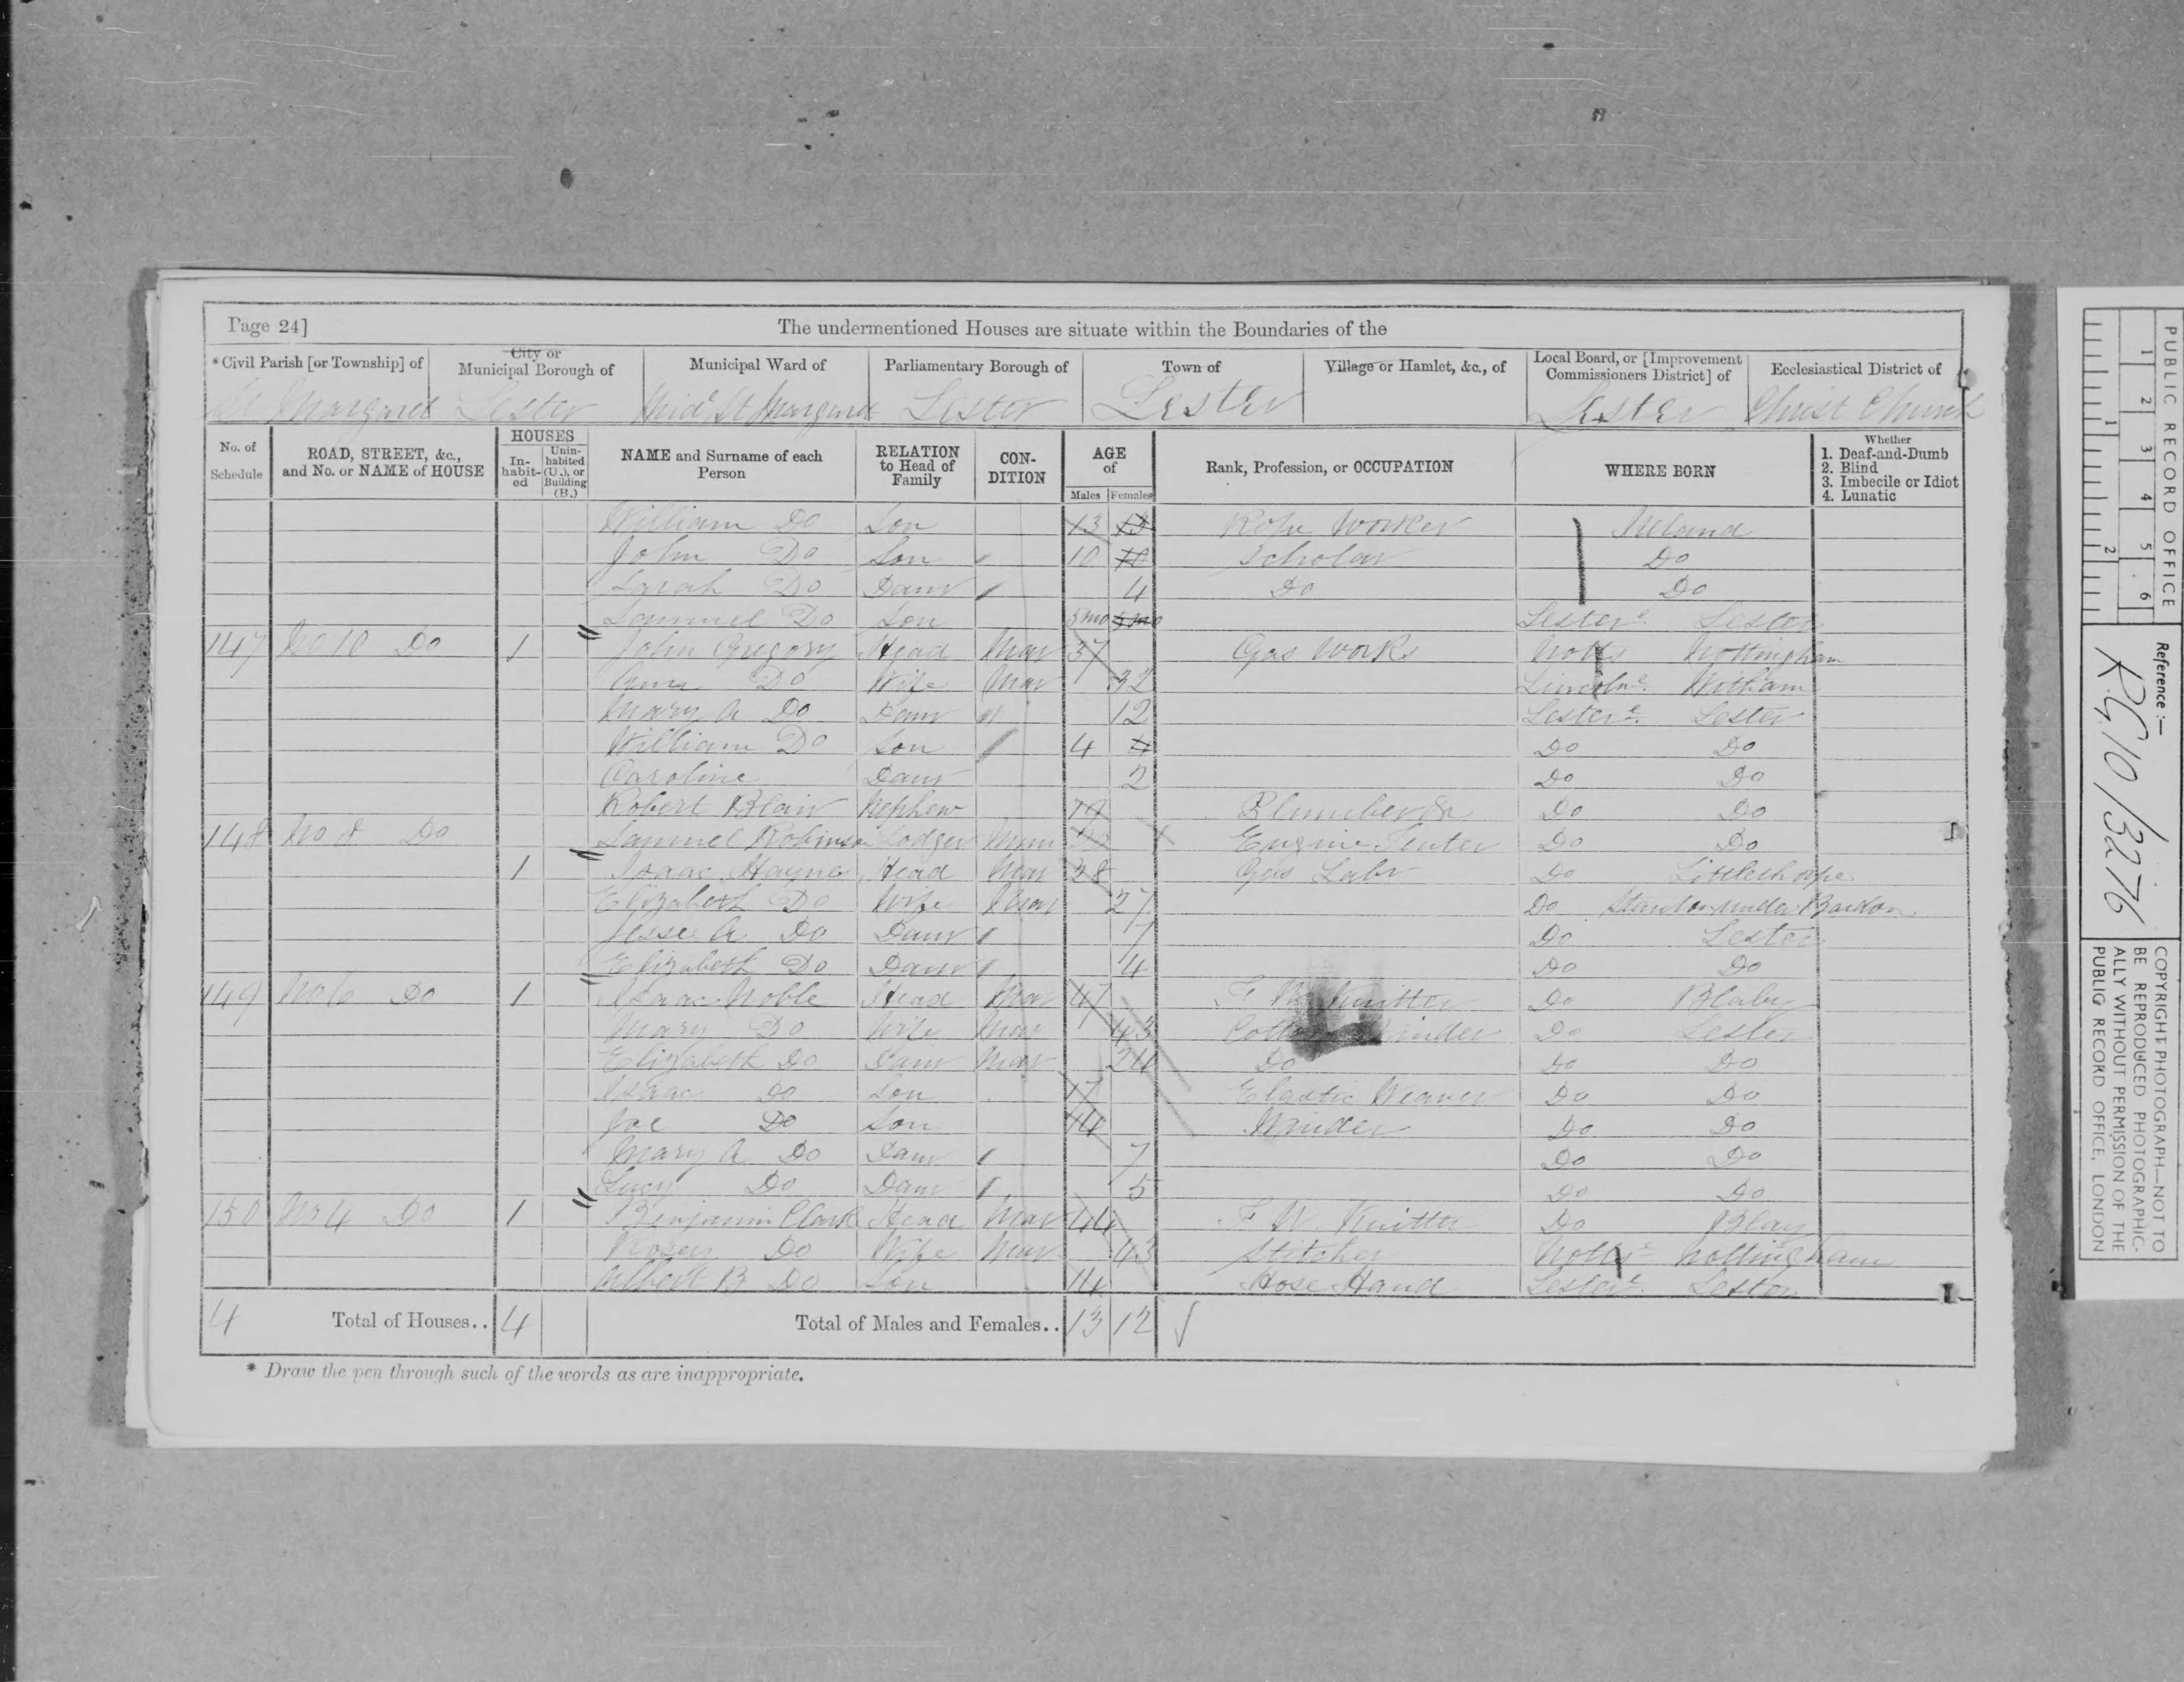 Page 24]
The undermentioned Houses are situate within the Boundaries of the
* Civil Parish [or Township] of City or Municipal Borough of Municipal Ward of Parliamentary Borough of Town of Village or Hamlet, &c., of Local Board, or [Improvement Commissioners District] of Ecclesiastical District of
St Margaret Lester St Margaret Lester Lester Lester Christ Church
No. of Schedule ROAD, STREET, &c., and No. or NAME of HOUSE HOUSES In-habit-ed Unin-habited (U.), or Building (B.) NAME and Surname of each Person RELATION to Head of Family CON-DITION AGE of Males Females Rank, Profession, or OCCUPATION WHERE BORN Whether 1. Deaf-and-Dumb 2. Blind 3. Imbecile or Idiot 4. Lunatic
William Do Son 13 13 Rope Worker Ireland
John Do Son 10 10 Scholar Do
Sarah Do Daur 4 Do Do
Sammuel Do Son 5mo 5mo Lestere Lester
147 No 10 Do 1 John Gregory Head Mar 37 Gas Works Notts Nottingham
Do Wife Mar 32 Lincolne Witham
Mary A Do Daur 12 Lestere Lester
William Do Son 4 4 Do Do
Caroline Daur 2 Do Do
Robert Blair Nephew 19 Do Do
148 No 8 Do Sammuel Robinson Lodger Engine Tenter Do Do
1 Isaac Hayne Head Mar 38 Gas Labr Do Littlethorpe
Elizabeth Do Wife Mar 27 Do Stanton under Bardon
Jesse A Do Daur 7 Do Lester
Elizabeth Do Daur 4 Do Do
149 No 6 Do 1 Isaac Noble Head Mar 47 F W Knitter Do Blaby
Mary Do Wife Mar 43 Cotton Winder Do Lester
Elizabeth Do Daur Mar 24 Do Do Do
Isaac Do Son 17 Elastic Weaver Do Do
Joe Do Son 14 Winder Do Do
Mary A Do Daur 7 Do Do
Lucy Do Daur 5 Do Do
150 No 4 Do 1 Benjamin Clark Head Mar 44 F W Knitter Do Blay
Do Wife Mar 43 Stitcher Notts Nottingham
Albert B Do Son 14 Hose Hand Lestere Lester
4 Total of Houses.. 4 Total of Males and Females.. 13 12
* Draw the pen through such of the words as are inappropriate.
PUBLIC RECORD OFFICE
1 2 3 4 5 6
1 2
Reference :—
RG 10/3276
COPYRIGHT PHOTOGRAPH—NOT TO
BE REPRODUCED PHOTOGRAPHIC-
ALLY WITHOUT PERMISSION OF THE
PUBLIC RECORD OFFICE, LONDON